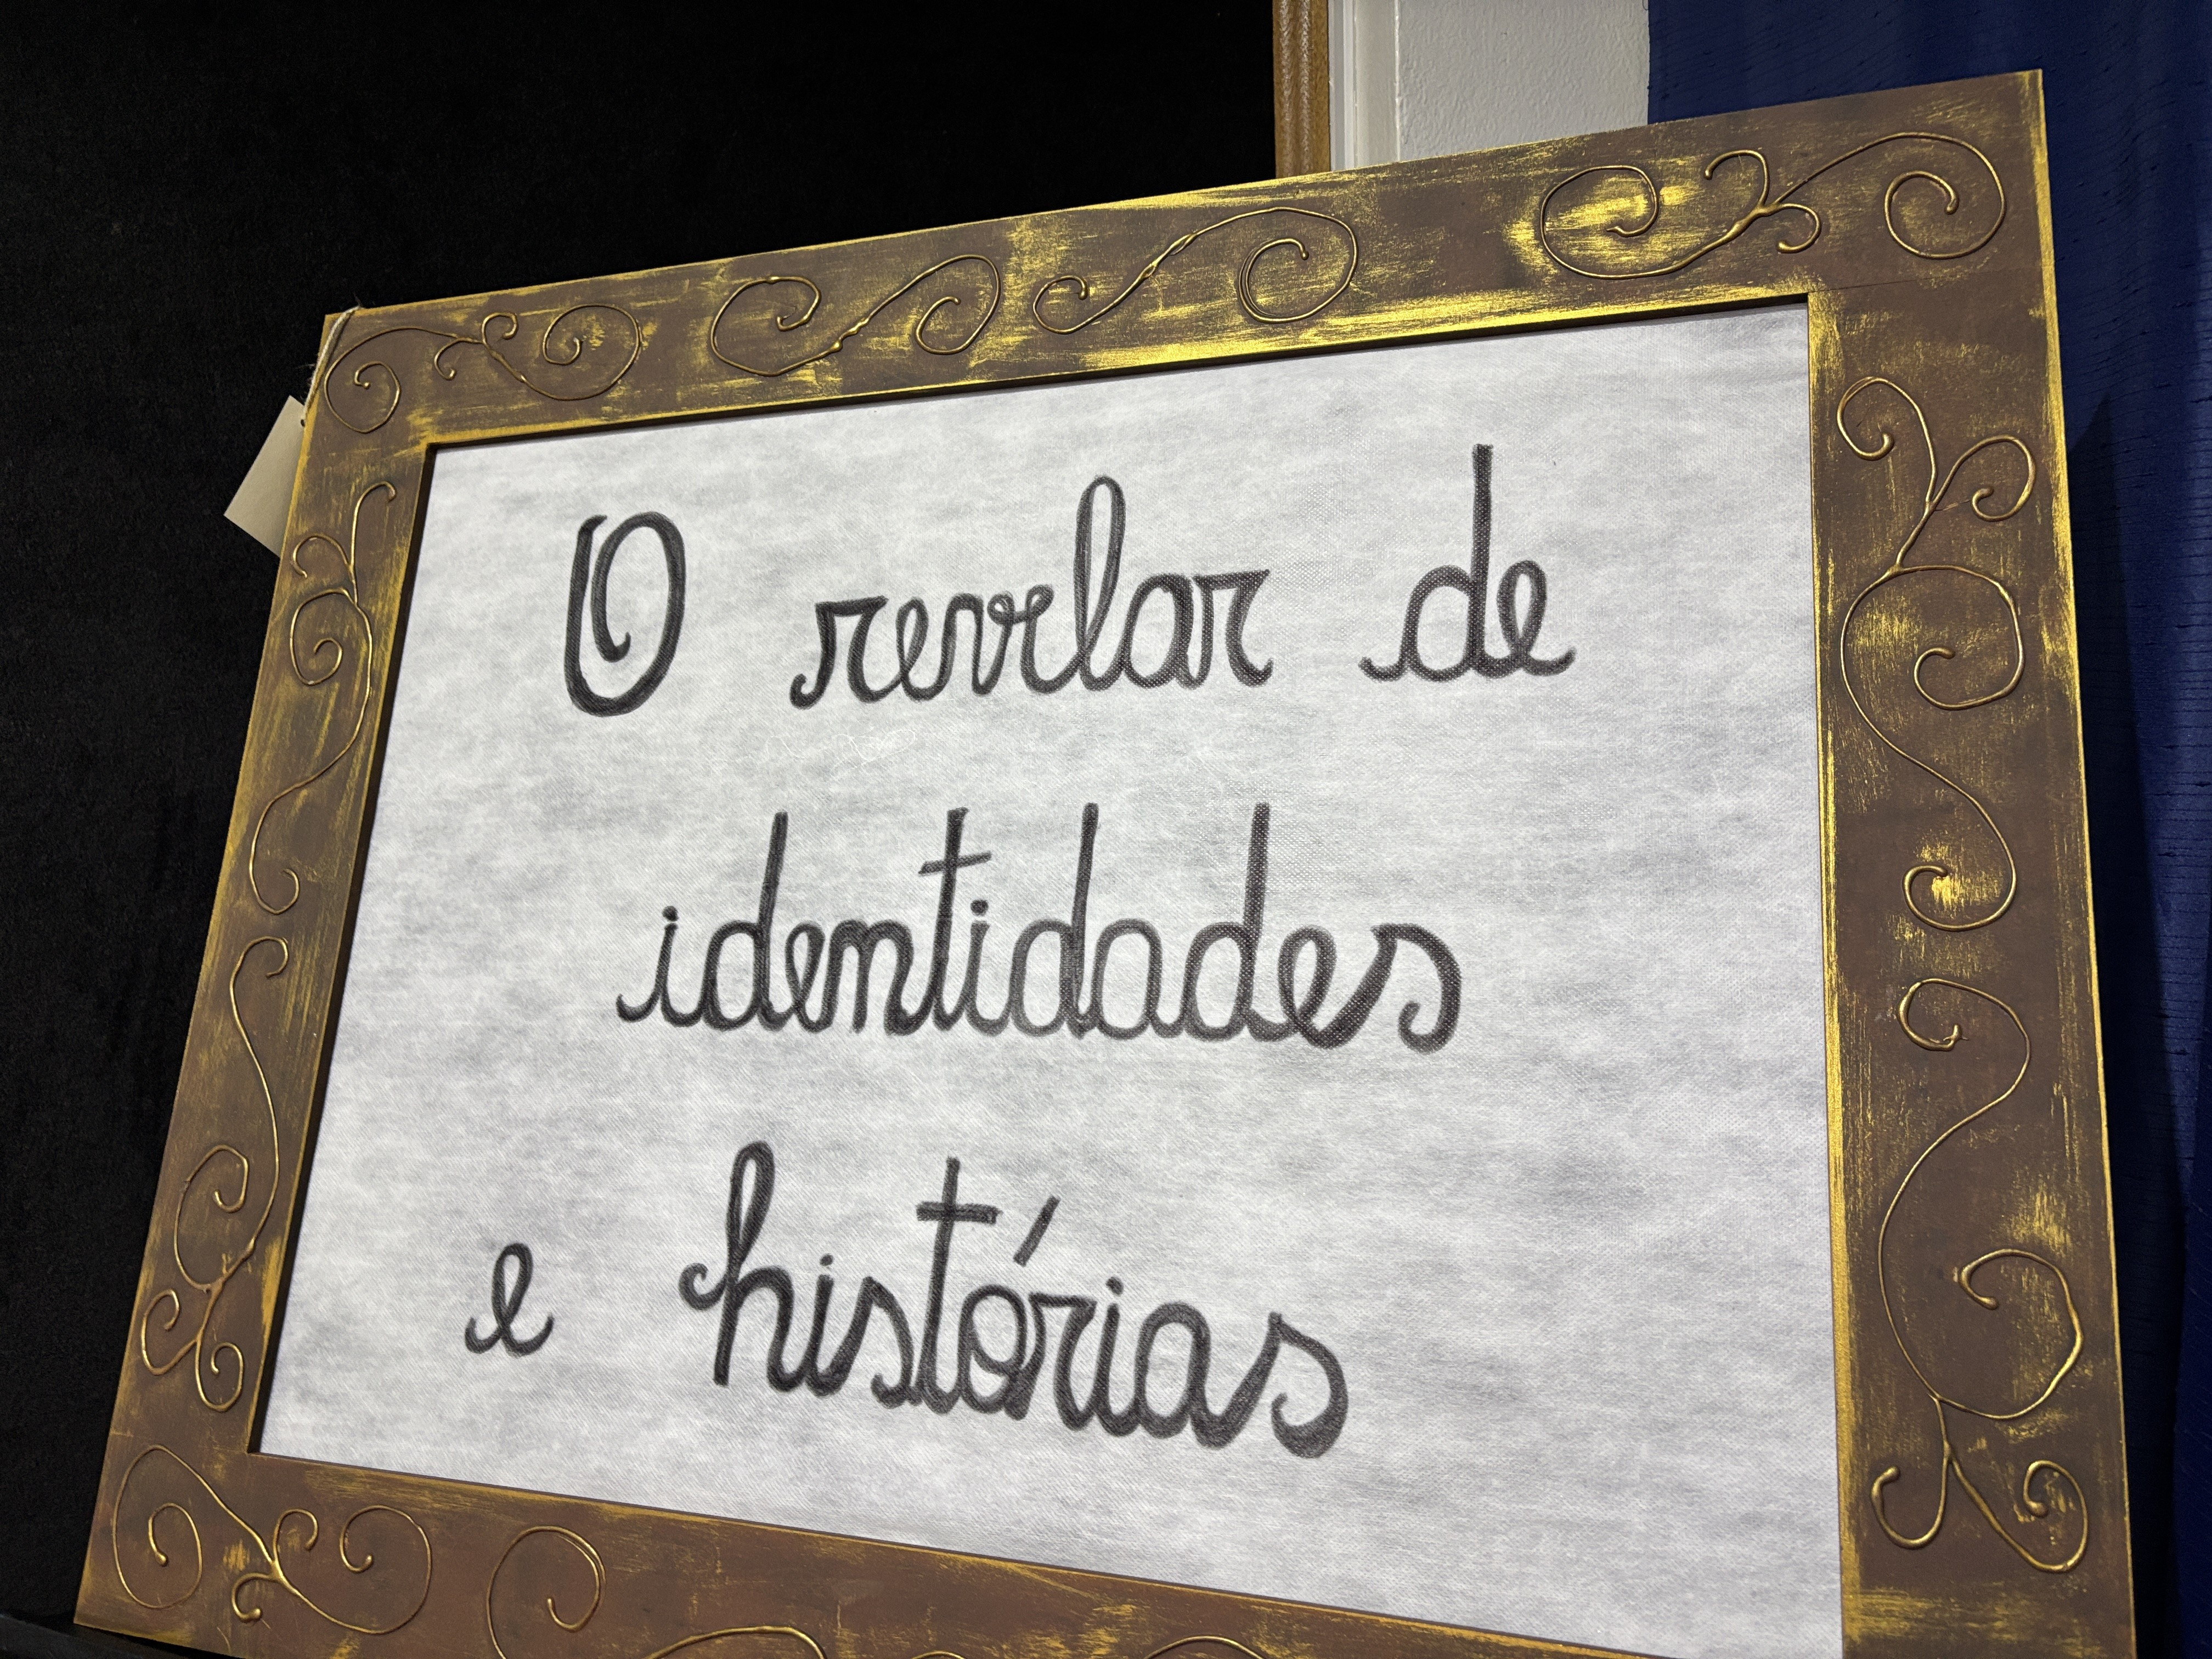 O revelar de
identidades
e histórias